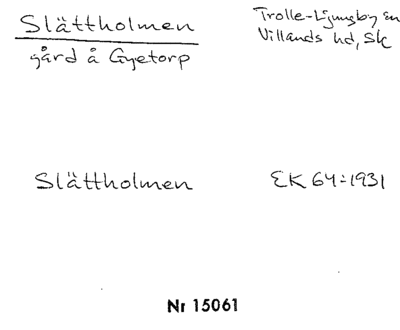 Slättholmen
gård å Gyetorp
Trolle-Ljungby sn
Villands hd, Sk
Slättholmen
EK 64:1931
Nr 15061